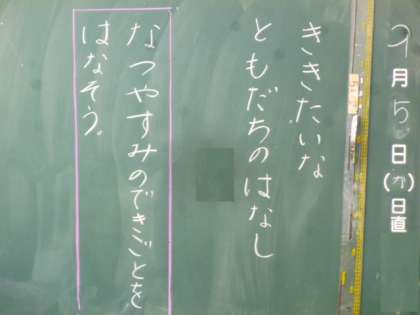 9月5日(カ)日直
ききたいな
ともだちのはなし
なつやすみのできごとを
はなそう。